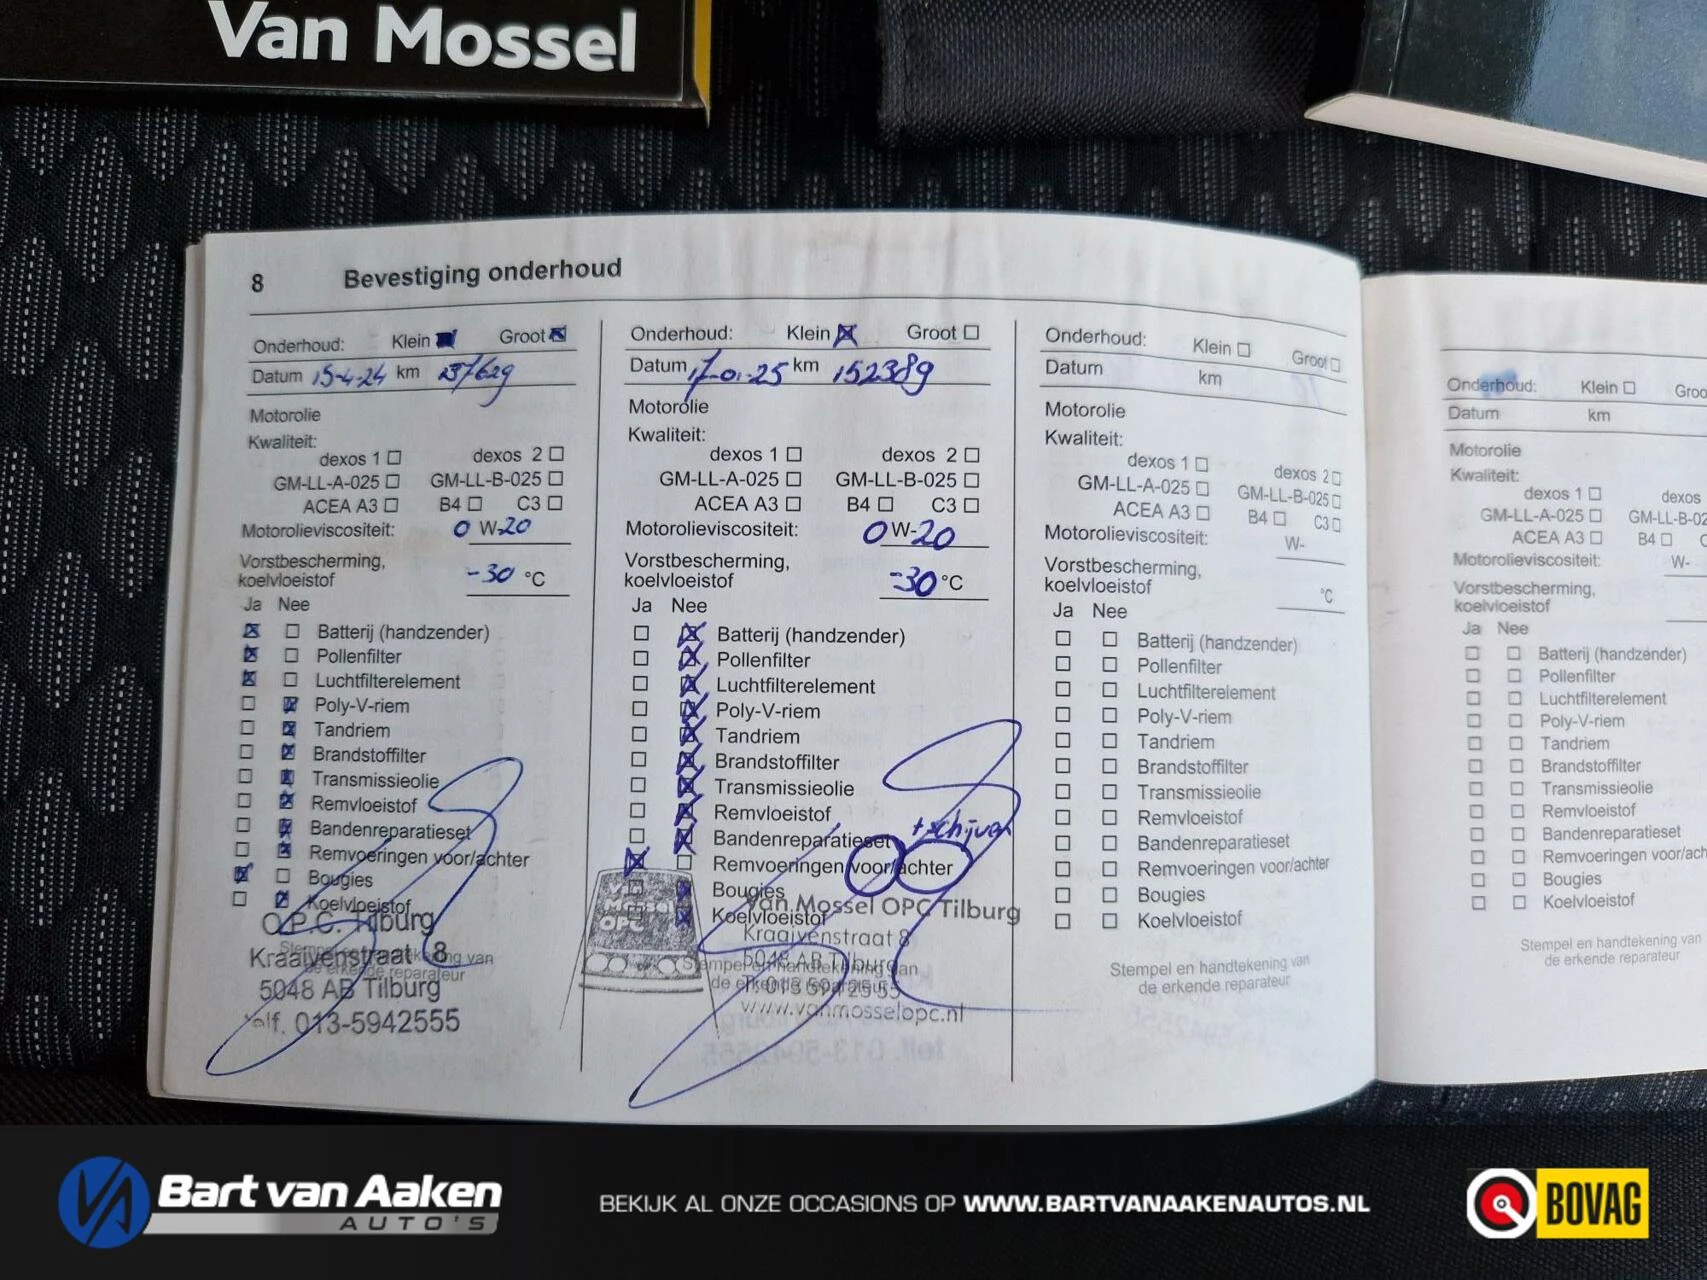 Van Mossel
8 Bevestiging onderhoud
Onderhoud: Klein Groot
Datum 15-4-24 km 137629
Motorolie
Kwaliteit:
dexos 1 dexos 2
GM-LL-A-025 GM-LL-B-025
ACEA A3 B4 C3
Motorolieviscositeit: 0 W-20
Vorstbescherming,
koelvloeistof -30 °C
Ja Nee
Batterij (handzender)
Pollenfilter
Luchtfilterelement
Poly-V-riem
Tandriem
Brandstoffilter
Transmissieolie
Remvloeistof
Bandenreparatieset
Remvoeringen voor/achter
Bougies
Koelvloeistof
O.P.C. Tilburg
Stempel en handtekening van
Kraaivenstraat 8
de erkende reparateur
5048 AB Tilburg
Telf. 013-5942555
Onderhoud: Klein Groot
Datum 17-01-25 km 152389
Motorolie
Kwaliteit:
dexos 1 dexos 2
GM-LL-A-025 GM-LL-B-025
ACEA A3 B4 C3
Motorolieviscositeit: 0 W-20
Vorstbescherming,
koelvloeistof -30 °C
Ja Nee
Batterij (handzender)
Pollenfilter
Luchtfilterelement
Poly-V-riem
Tandriem
Brandstoffilter
Transmissieolie
Remvloeistof
+ schijven
Bandenreparatieset
Remvoeringen voor/achter
Bougies
Koelvloeistof
Van Mossel OPC Tilburg
Kraaivenstraat 8
5048 AB Tilburg
Stempel en handtekening van
de erkende reparateur
T. 013 5942555
www.vanmosselopc.nl
Onderhoud: Klein Groot
Datum km
Motorolie
Kwaliteit:
dexos 1 dexos 2
GM-LL-A-025 GM-LL-B-025
ACEA A3 B4 C3
Motorolieviscositeit: W-
Vorstbescherming,
koelvloeistof °C
Ja Nee
Batterij (handzender)
Pollenfilter
Luchtfilterelement
Poly-V-riem
Tandriem
Brandstoffilter
Transmissieolie
Remvloeistof
Bandenreparatieset
Remvoeringen voor/achter
Bougies
Koelvloeistof
Stempel en handtekening van
de erkende reparateur
Onderhoud: Klein Groo
Datum km
Motorolie
Kwaliteit:
dexos 1 dexos
GM-LL-A-025 GM-LL-B-02
ACEA A3 B4 C
Motorolieviscositeit: W-
Vorstbescherming,
koelvloeistof
Ja Nee
Batterij (handzender)
Pollenfilter
Luchtfilterelement
Poly-V-riem
Tandriem
Brandstoffilter
Transmissieolie
Remvloeistof
Bandenreparatieset
Remvoeringen voor/ach
Bougies
Koelvloeistof
Stempel en handtekening van
de erkende reparateur
Bart van Aaken
AUTO'S
BEKIJK AL ONZE OCCASIONS OP WWW.BARTVANAAKENAUTOS.NL
BOVAG